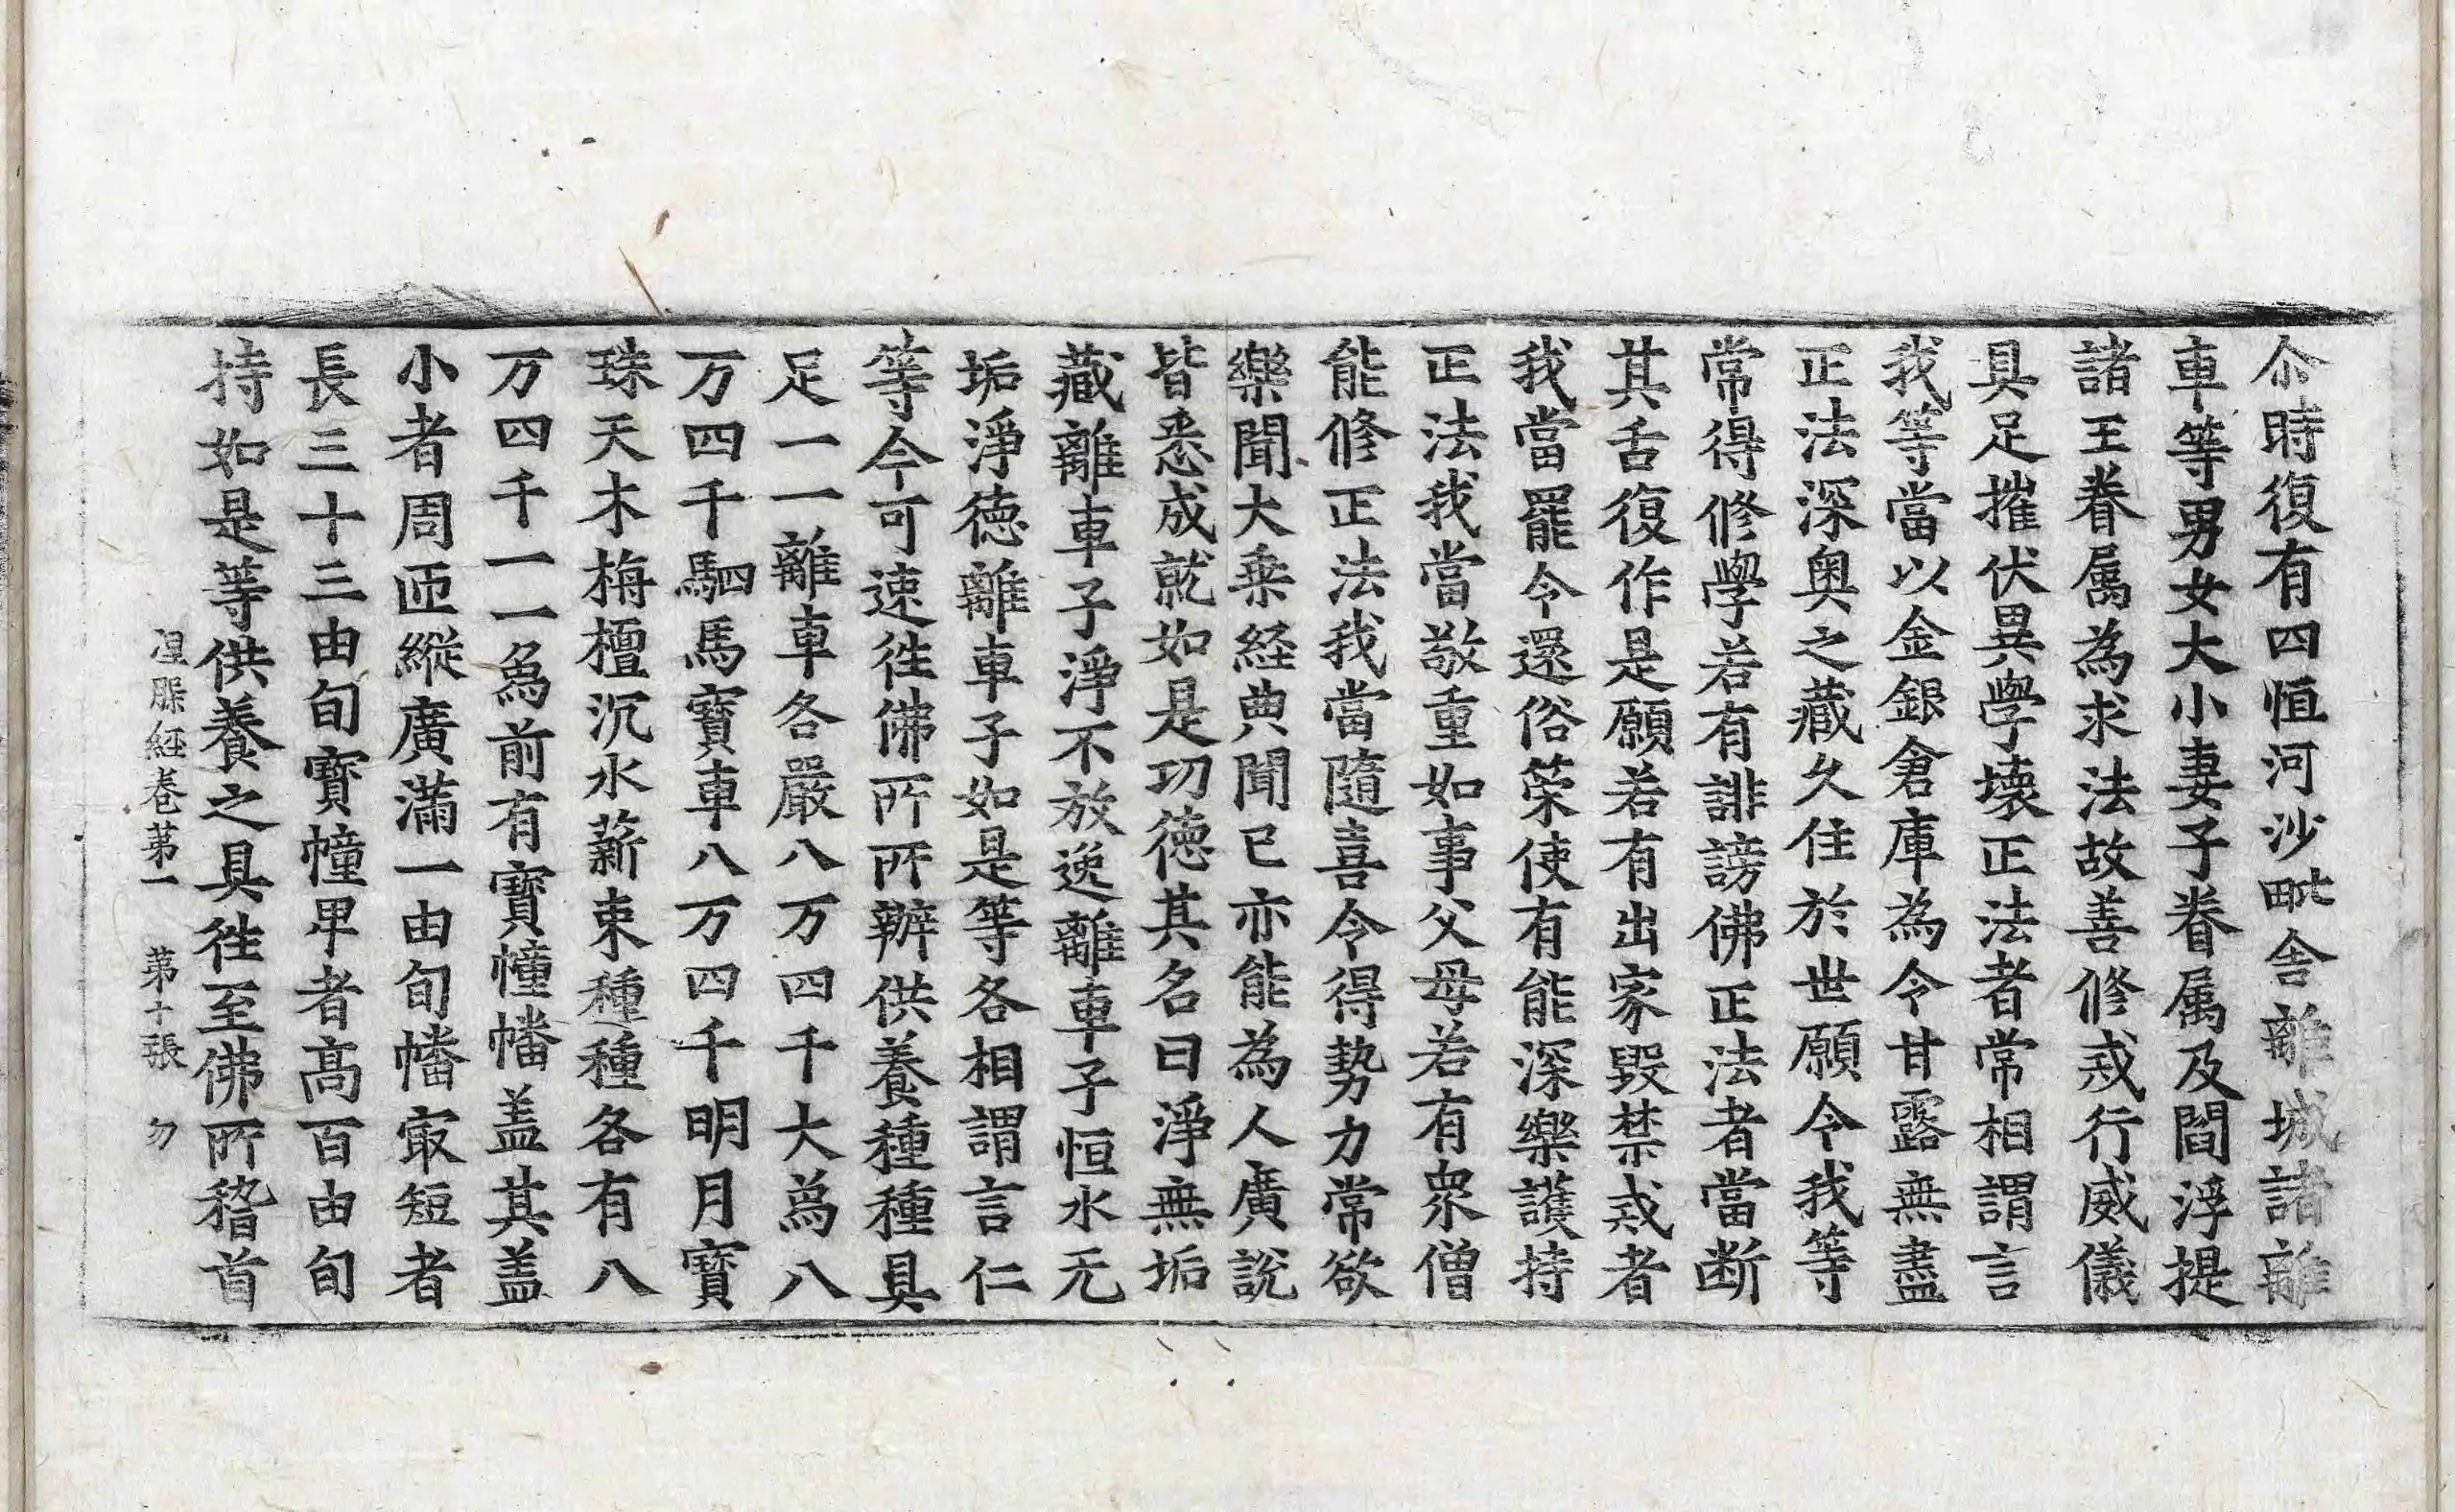 尒時復有四恒河沙毗舍離城諸離
車等男女大小妻子眷属及閻浮提
諸王眷属為求法故善修戒行威儀
具足摧伏異學壊正法者常相謂言
我等當以金銀倉庫為令甘露無盡
正法深奥之藏久住於世願令我等
常得修學若有誹謗佛正法者當断
其舌復作是願若有出家毀禁戒者
我當罷令還俗策使有能深樂護持
正法我當敬重如事父母若有衆僧
能修正法我當隨喜令得勢力常欲
樂聞大乗経典聞已亦能為人廣說
皆悉成就如是功徳其名曰淨無垢
藏離車子淨不放逸離車子恒水无
垢淨徳離車子如是等各相謂言仁
等今可速徃佛所所辦供養種種具
足一一離車各嚴八万四千大爲八
万四千駟馬寳車八万四千明月寳
珠天木栴檀沉水薪束種種各有八
万四千一一爲前有寳幢幡盖其盖
小者周匝縱廣滿一由旬幡㝡短者
長三十三由旬寳幢卑者髙百由旬
持如是等供養之具徃至佛所稽首
涅槃経卷苐一　苐十張　勿